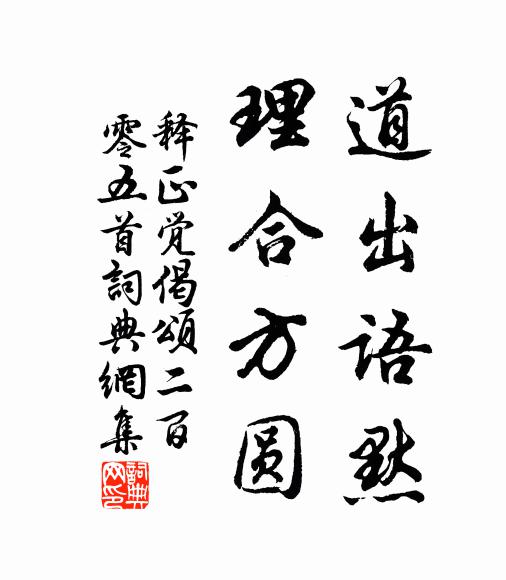 道出语默
理合方圆
释正觉偈颂二百
零五首詞典網集
詞典
网印